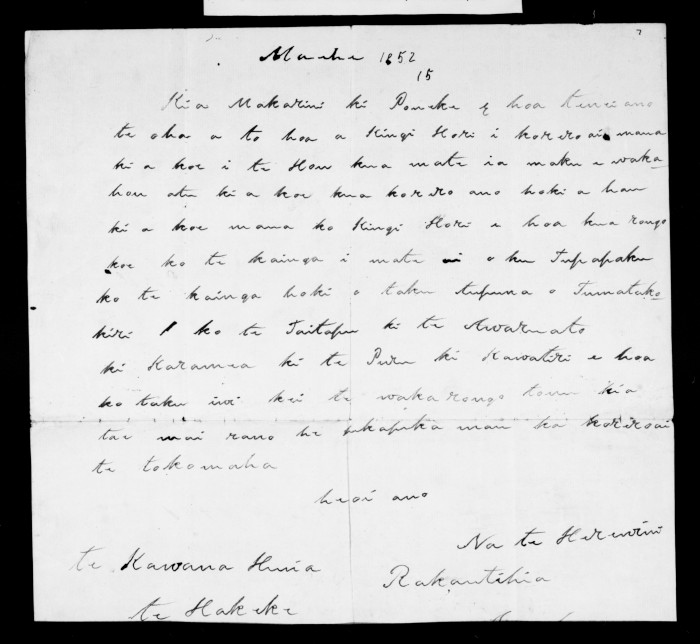 Maehe 1852
15
Kia Makarini ki Poneke e hoa tenei ano
te oha a to hoa a Kingi Hori i korero ai mana
ki a koe i te Hou kua mate ia maku e waka-
hou atu ki a koe kua korero ano hoki a hau
ki a koe mana ko Kingi Hori e hoa kua rongo
koe ko te kainga i mate ai o ku Tupapaku
ko te kainga hoki o taku tupuna o Tumatako-
kiri ko te Taitapu ki te Awaruato
ki Karamea ki te Puru ki Kawatiri e hoa
ko taku iwi kei te wakarongo tonu kia
tae mai rano he pukapuka mau ka korero ai
te tokomaha
heoi ano
Na te Herewini
te Kawana Huia
Rakautihia
te Hakeke